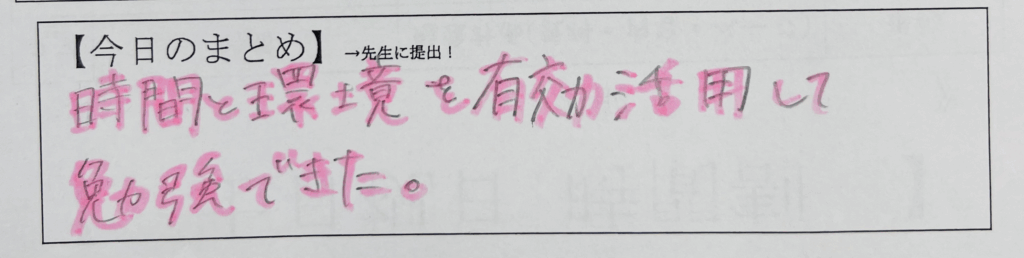 【今日のまとめ】→先生に提出!
時間と環境を有効活用して
勉強できた。